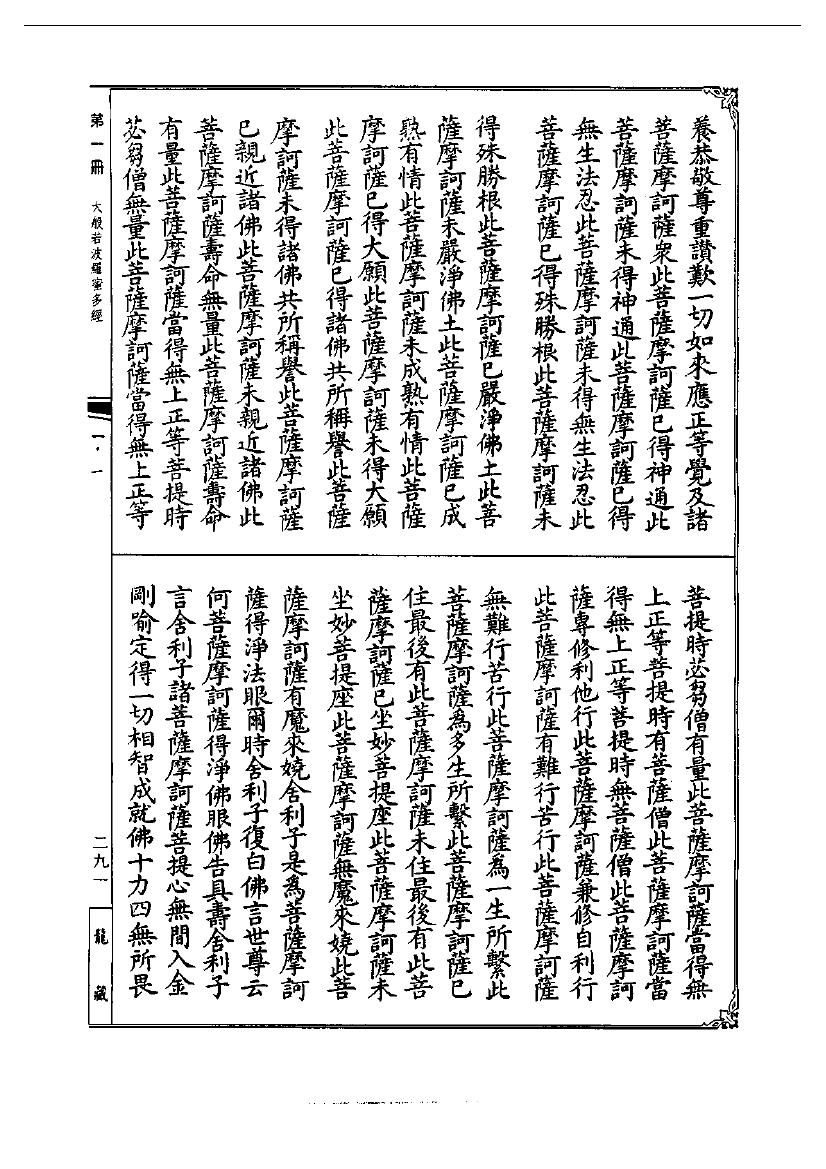 養恭敬尊重讚歎一切如來應正等覺及諸
菩薩摩訶薩衆此菩薩摩訶薩已得神通此
菩薩摩訶薩未得神通此菩薩摩訶薩已得
無生法忍此菩薩摩訶薩未得無生法忍此
菩薩摩訶薩已得殊勝根此菩薩摩訶薩未
得殊勝根此菩薩摩訶薩已嚴淨佛土此菩
薩摩訶薩未嚴淨佛土此菩薩摩訶薩已成
熟有情此菩薩摩訶薩未成熟有情此菩薩
摩訶薩已得大願此菩薩摩訶薩未得大願
此菩薩摩訶薩已得諸佛共所稱譽此菩薩
摩訶薩未得諸佛共所稱譽此菩薩摩訶薩
已親近諸佛此菩薩摩訶薩未親近諸佛此
菩薩摩訶薩壽命無量此菩薩摩訶薩壽命
有量此菩薩摩訶薩當得無上正等菩提時
苾芻僧無量此菩薩摩訶薩當得無上正等
菩提時苾芻僧有量此菩薩摩訶薩當得無
上正等菩提時有菩薩僧此菩薩摩訶薩當
得無上正等菩提時無菩薩僧此菩薩摩訶
薩專修利他行此菩薩摩訶薩兼修自利行
此菩薩摩訶薩有難行苦行此菩薩摩訶薩
無難行苦行此菩薩摩訶薩為一生所繫此
菩薩摩訶薩為多生所繫此菩薩摩訶薩已
住最後有此菩薩摩訶薩未住最後有此菩
薩摩訶薩已坐妙菩提座此菩薩摩訶薩未
坐妙菩提座此菩薩摩訶薩無魔來嬈此菩
薩摩訶薩有魔來嬈舍利子是為菩薩摩訶
薩得淨法眼爾時舍利子復白佛言世尊云
何菩薩摩訶薩得淨佛眼佛告具壽舍利子
言舍利子諸菩薩摩訶薩菩提心無間入金
剛喻定得一切相智成就佛十力四無所畏
第一冊 大般若波羅蜜多經
一·一
二九一
龍藏